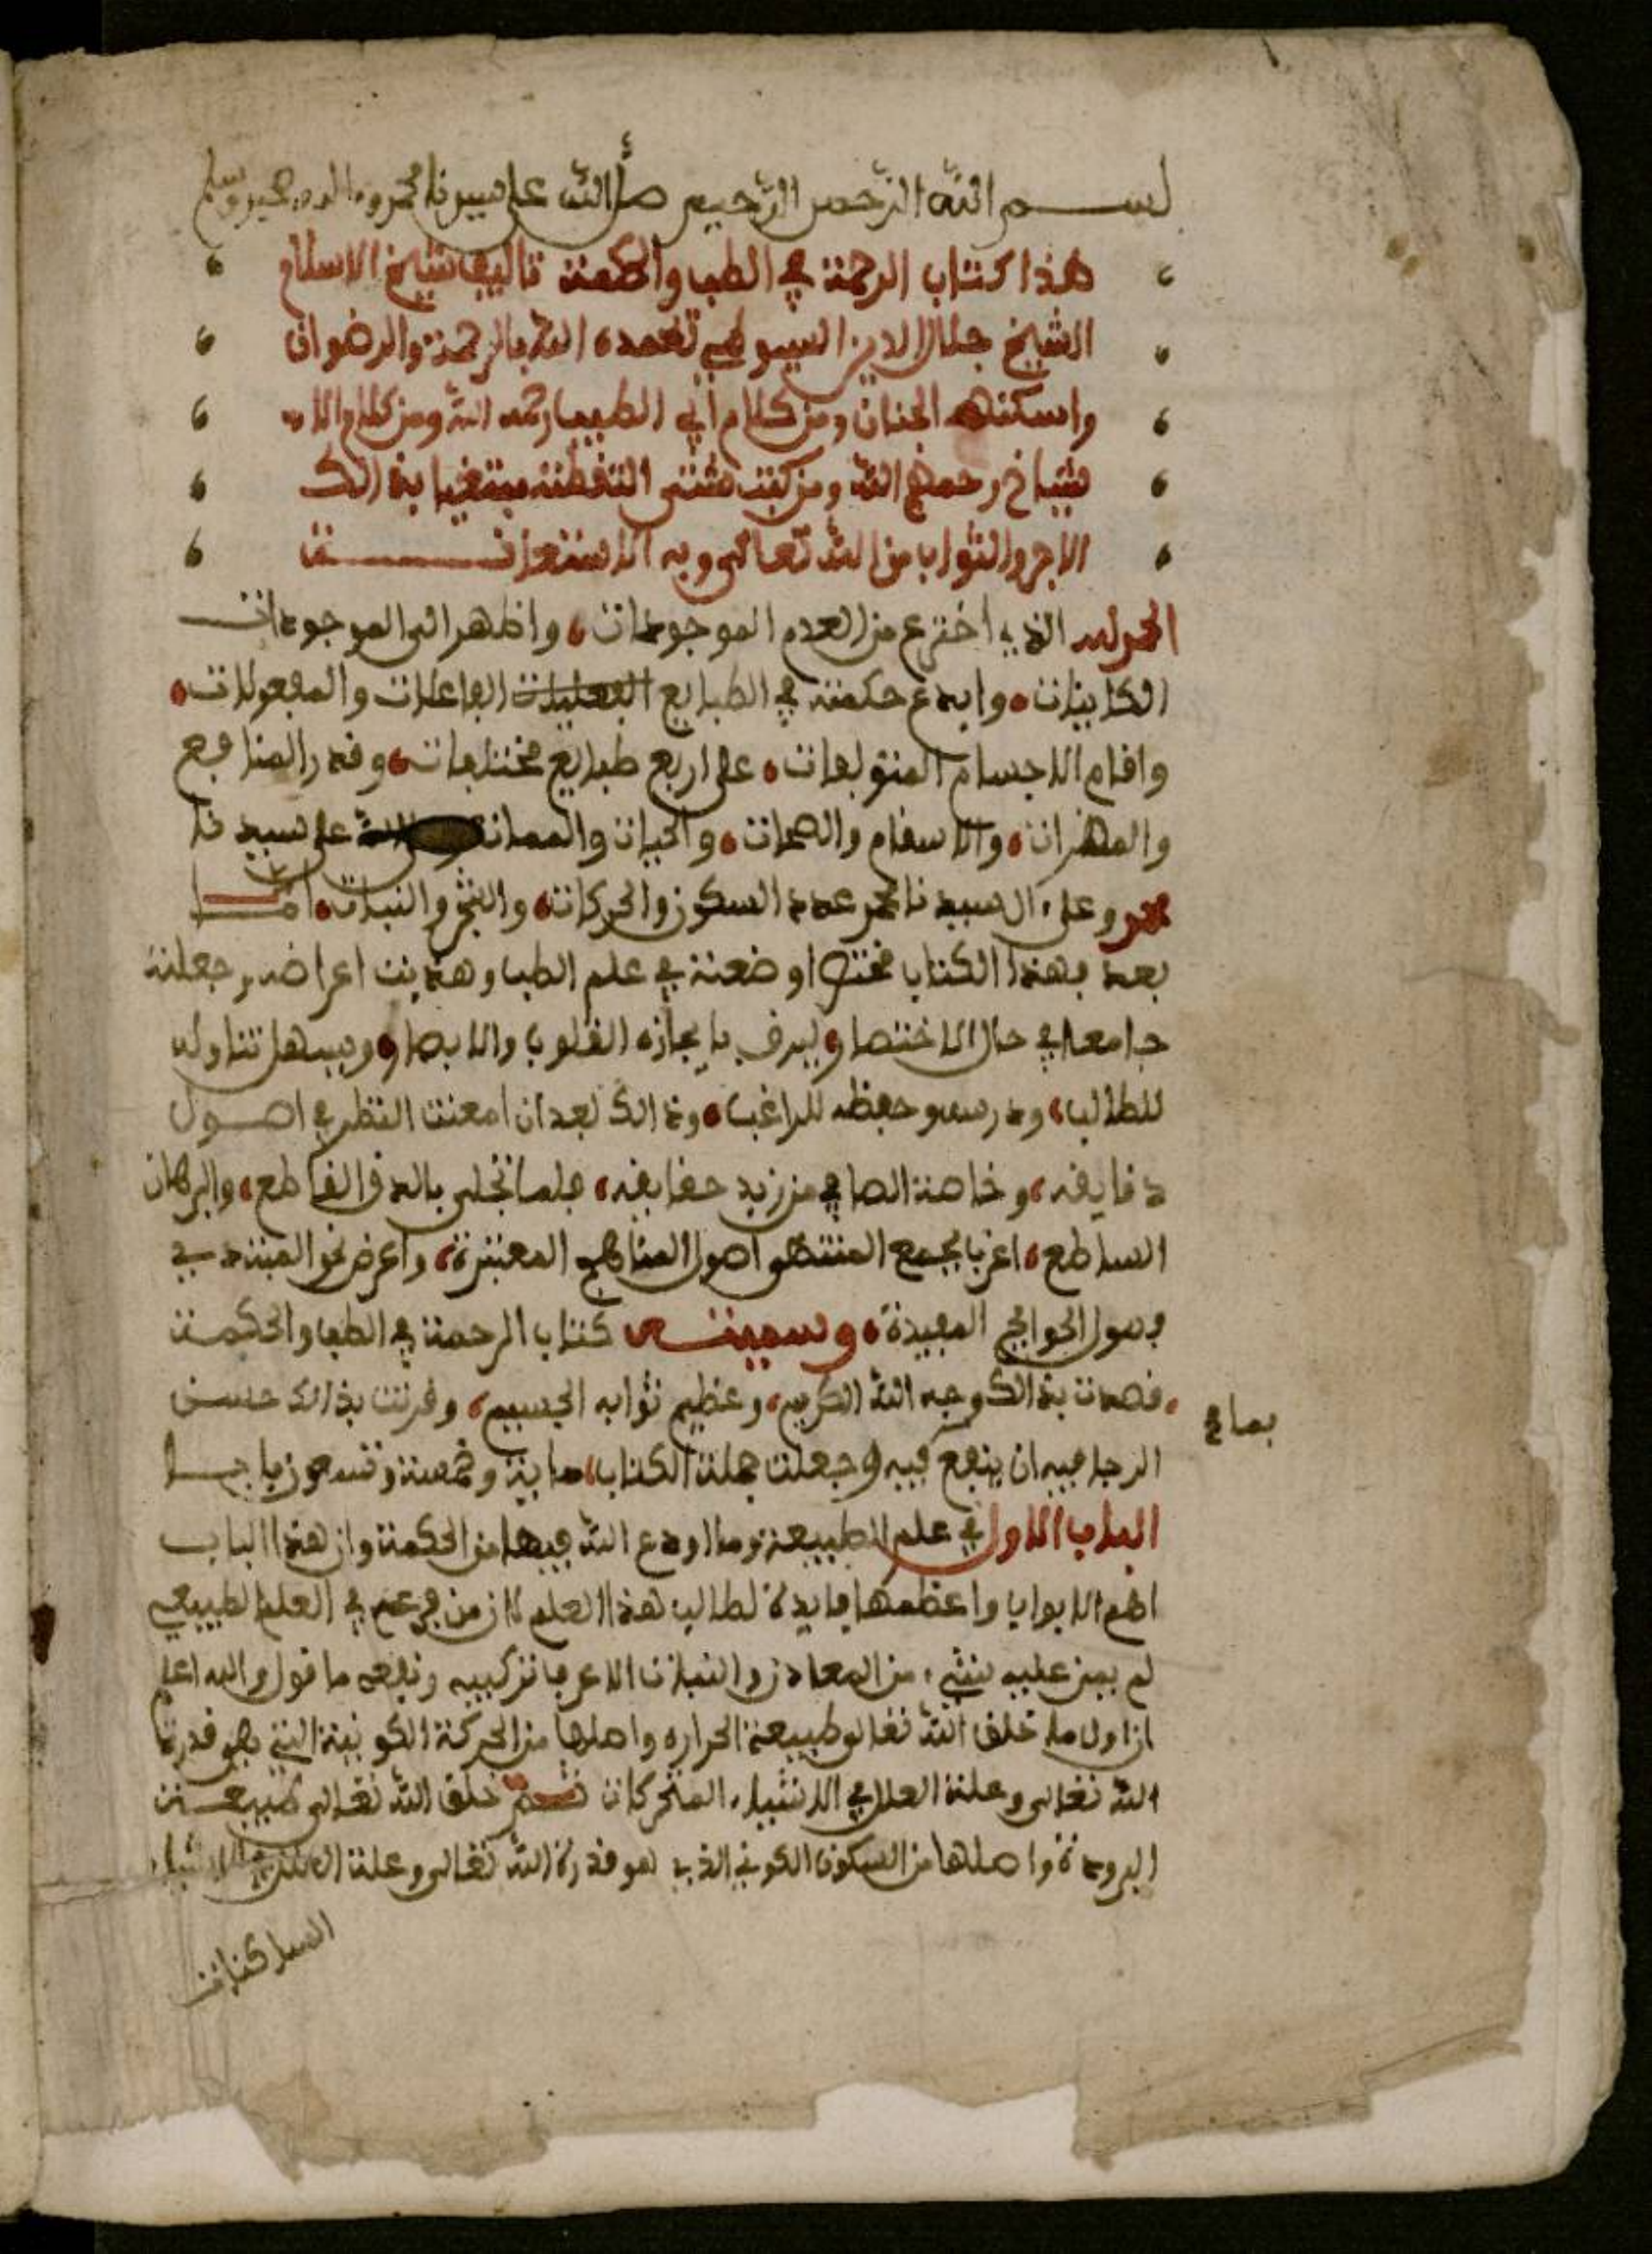 بسم الله الرحمن الرحيم صلى الله على سيدنا محمد وءاله وصحبه وسلم
هذا كتاب الرحمة في الطب والحكمة تاليف شيخ الاسلام
الشيخ جلال الدين السيوطي تغمده الله بالرحمة والرضوان
واسكنه الجنان ومن كلام أبي الطيب رحمه الله ومن كلام الا
شياخ رحمهم الله ومن كتب شتى التقطته مبتغيا بذالك
الاجر والثواب من الله تعالى وبه الاستعانة
الحمد لله الذي اخترع من العدم الموجودات واظهر الى الموجودات
الكاينات وابدع حكمته في الطبايع الفاعلات والمفعولات
واقام الاجسام المتولفات على اربع طبايع مختلفات وقدر المنافع
والمضرات والاسقام والصحات والحيات والممات الله على سيدنا
محمد وعلى ءال سيدنا محمد عدد السكون والحركات والنجم والنبات اما
بعد فهذا الكتاب مختصرا وضعته في علم الطب وهذبت اعراضه وجعلته
جامعا في حال الاختصار ليرق بايجازه القلوب والابصار ويسهل تناوله
للطالب ودرسه وحفظه للراغب وذالك بعد ان امعنت النظر في اصول
دقايقه وخاصة الصافي من زبد حقايقه فلما تجلى بالحق القاطع والبرهان
الساطع اعرب بجمع المنتهى اصول المناهج المعتبرة واعرض نحو المبتدي
فصول الحوايج المفيدة وسميته كتاب الرحمة في الطب والحكمة
قصدت بذالك وجه الله الكريم وعظيم ثوابه الجسيم وقرنت بذالك حسن
بما في
الرجا فيه ان ينفع فيه وجعلت جملة الكتاب ماية وخمسة وتسعون بابا
الباب الاول في علم الطبيعة وما اودع الله فيها من الحكمة وان هذا الباب
اهم الابواب واعظمها فايدة لطالب هذا العلم لان من في العلم الطبيعي
لم عليه شيء من المعادن والنبات الا عرف تركيبه ونفعه فاقول والله اعلم
ان اول ما خلق الله تعالى طبيعة الحراره واصلها من الحركة الكونية التي هي قدرة
الله تعالى وعلة العلل في الاشياء المتحركات ثم خلق الله تعالى طبيعة
البرودة واصلها من السكون الكوني الذي هو قدرة الله تعالى وعلة العلل في الاشياء
الساكنات